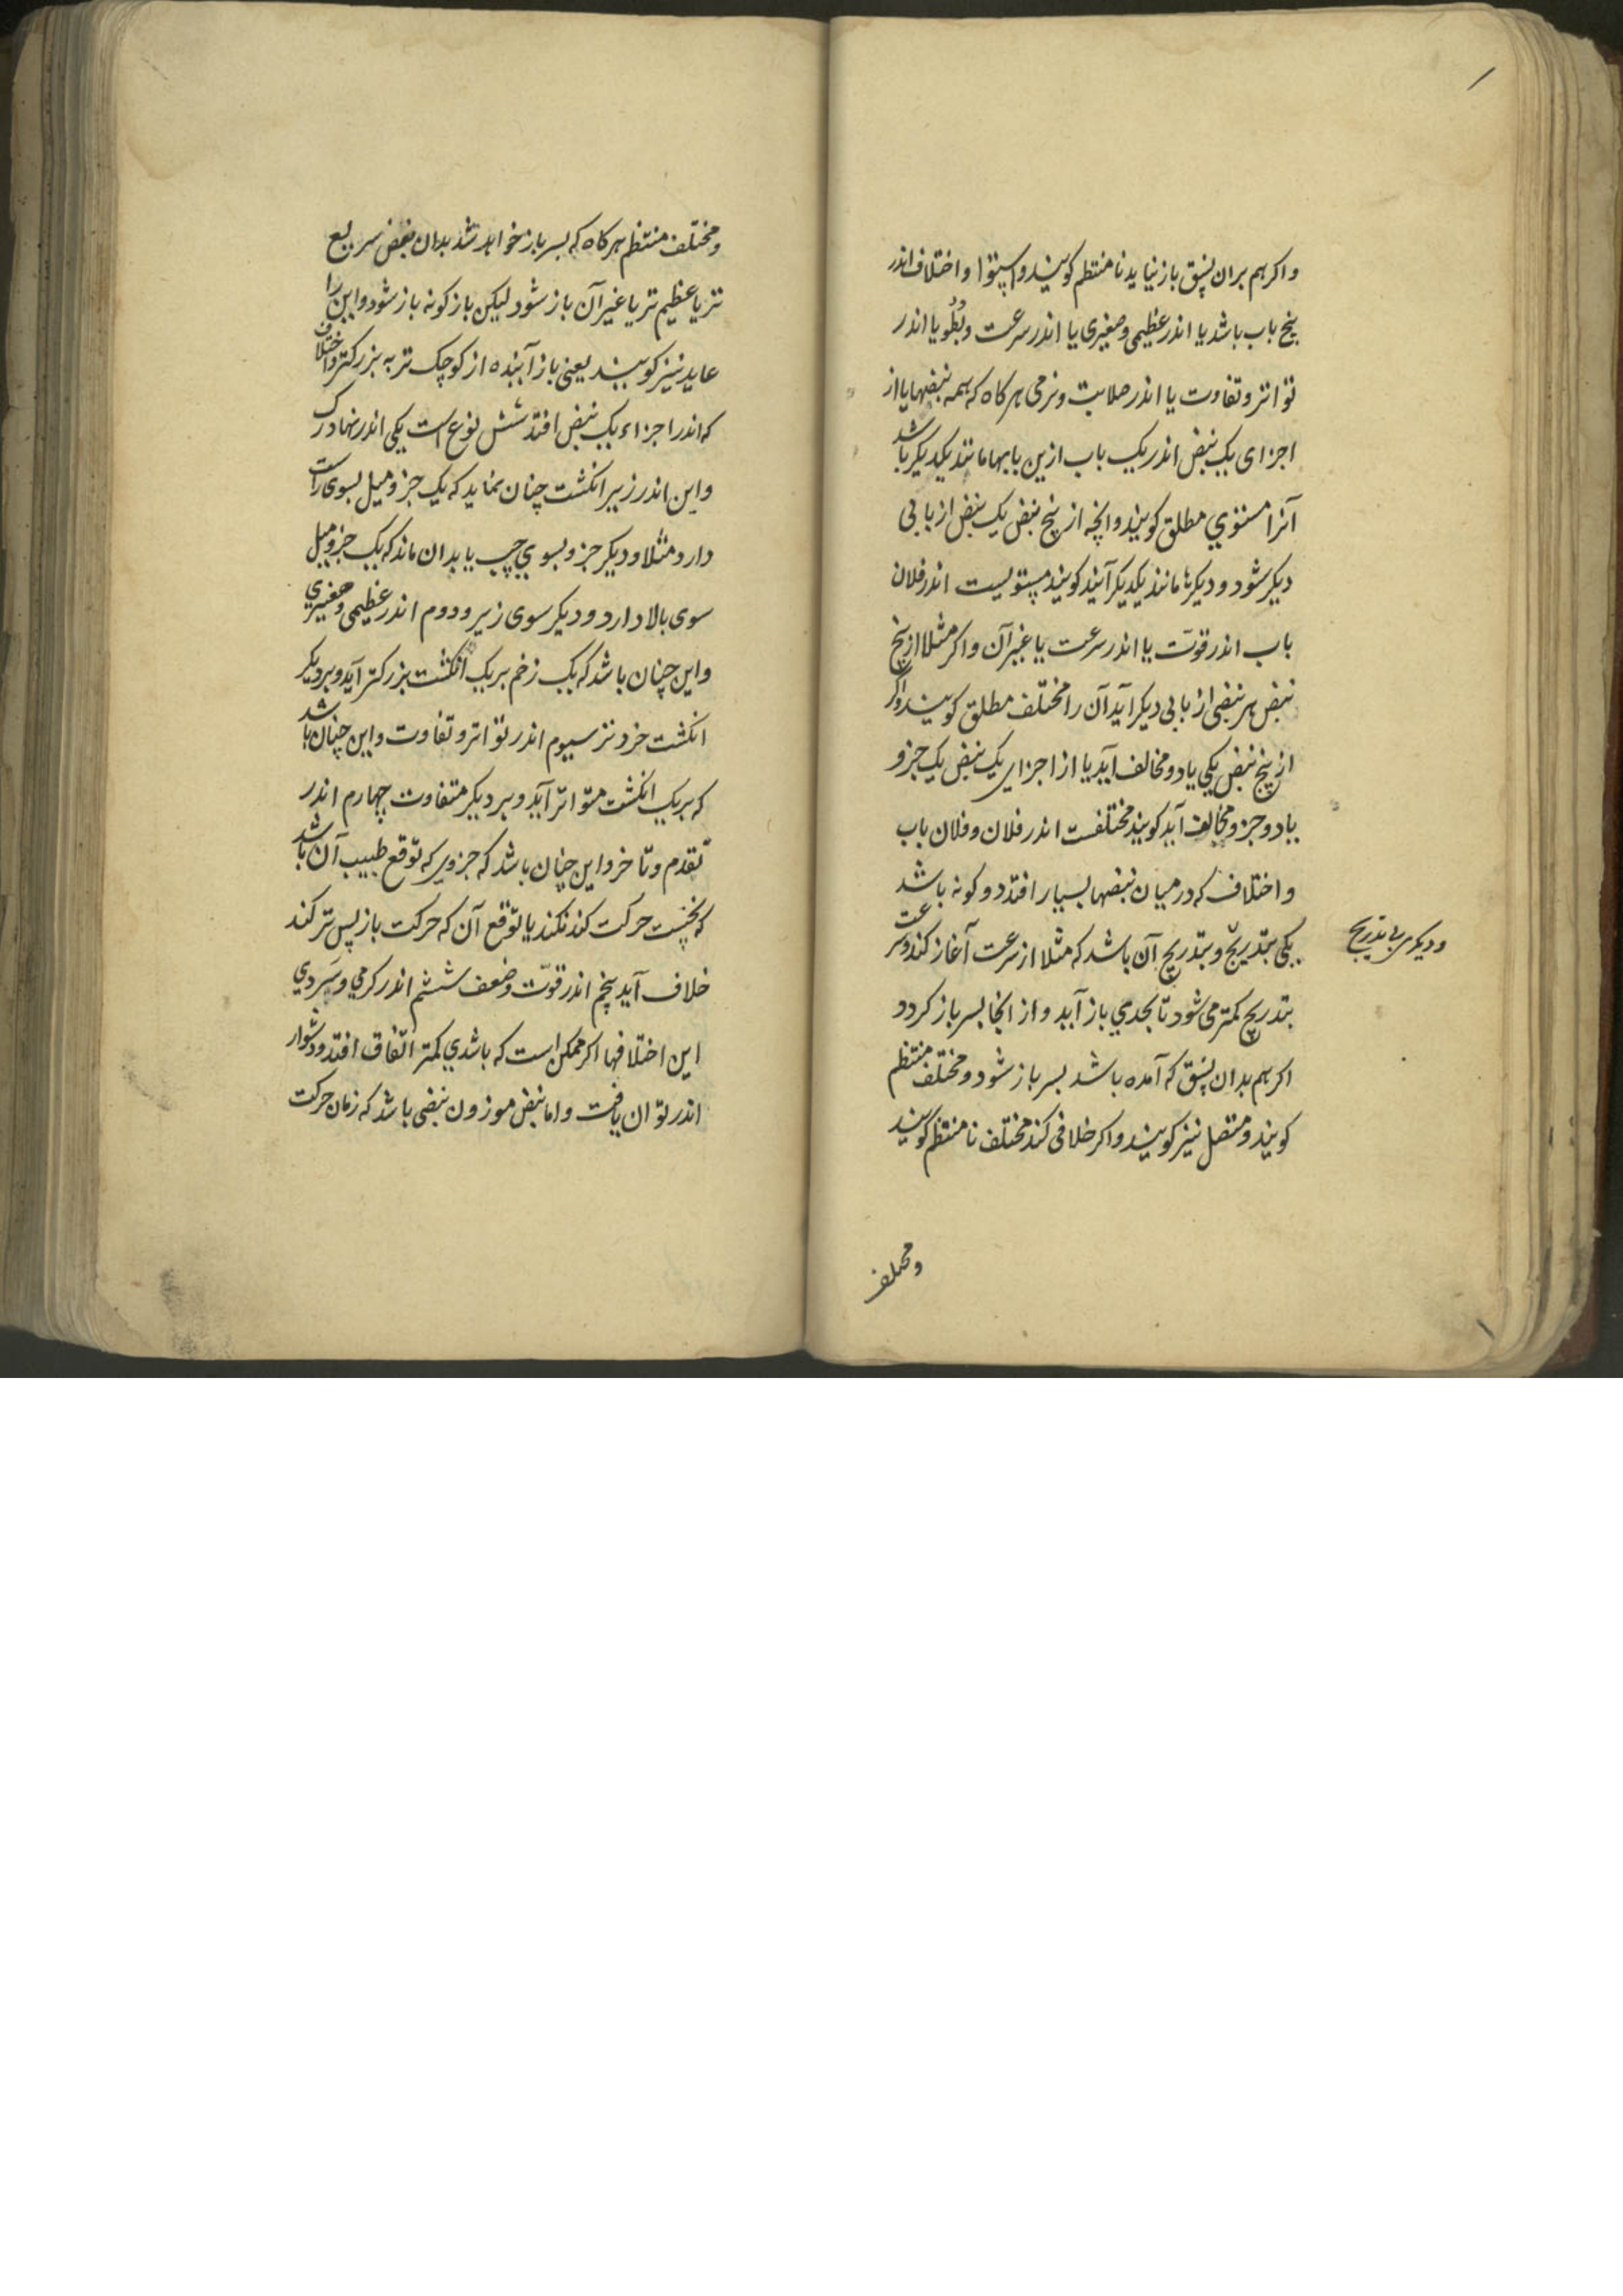 واکر هم بران نسق باز نیاید نا منتظم کویند و استوا و اختلاف اندر
پنج باب باشد یا اندر عظیمی و صغیری یا اندر سرعت و بُطُو یا اندر
تواتر و تفاوت یا اندر صلابت و نرمی هرکاه که همه نبضها یا از
اجزای یک نبض اندر یک باب ازین بابها مانند یکدیکر باشد
آنرا مستوي مطلق کویند وانچه از پنج نبض یک نبض از بابی
دیکر شود و دیکرها مانند یکدیکر آیند کویند مستویست اندر فلان
باب اندر قوّت یا اندر سرعت یا غیر آن واکر مثلا از پنج
نبض هر نبضی از بابی دیکر آید آن را مختلف مطلق کویند واکر
از پنج نبض یکی یا دو مخالف آید یا از اجزای یک نبض یک جزو
یا دو جزو مخالف آید کویند مختلفست اندر فلان و فلان باب
واختلاف که در میان نبضها بسیار افتد دو کونه باشد
یکی بتدریج و بتدریج آن باشد که مثلا از سرعت آغاز کند و سرعت
ودیکری بی تدریج
بتدریج کمتر می شود تا بحدي باز آید و از انجا بسر باز کردد
اکر هم بدان نسق که آمده باشد بسر باز شود و مختلف منتظم
کویند و متصل نیز کویند واکر خلافی کند مختلف نا منتظم کویند
ومختلف
ومختلف منتظم هرکاه که بسر باز خواهد شد بدان نبض سریع
تر یا عظیم تر یا غیر آن باز شود لیکن باز کونه باز شود و این را
عاید نیز کویند یعنی باز آینده از کوچک تر به بزرکتر واختلاف
که اندر اجزاء یک نبض افتد شش نوع است یکی اندر نهاد رک
واین اندر زیر انکشت چنان نماید که یک جزو میل بسوی راست
دارد مثلا و دیکر جزو بسوي چپ یا بدان ماند که یک جزو میل
سوی بالا دارد و دیکر سوی زیر و دوم اندر عظیمی و صغیري
واین چنان باشد که یک زخم بر یک انکشت بزرکتر آید و بر دیکر
انکشت خرد تر سیوم اندر تواتر و تفاوت واین چنان باشد
که بر یک انکشت متواتر آید و بر دیکر متفاوت چهارم اندر
تقدم و تاخر و این چنان باشد که جزوی که توقع طبیب آن باشد
که نخست حرکت کند نکند یا توقع آن که حرکت باز پس تر کند
خلاف آید پنجم اندر قوّت و ضعف ششم اندر کرمي و سردي
این اختلافها اکر ممکن است که باشدي کمتر اتّفاق افتد و دشوار
اندر توان یافت واما نبض موزون نبضی باشد که زمان حرکت